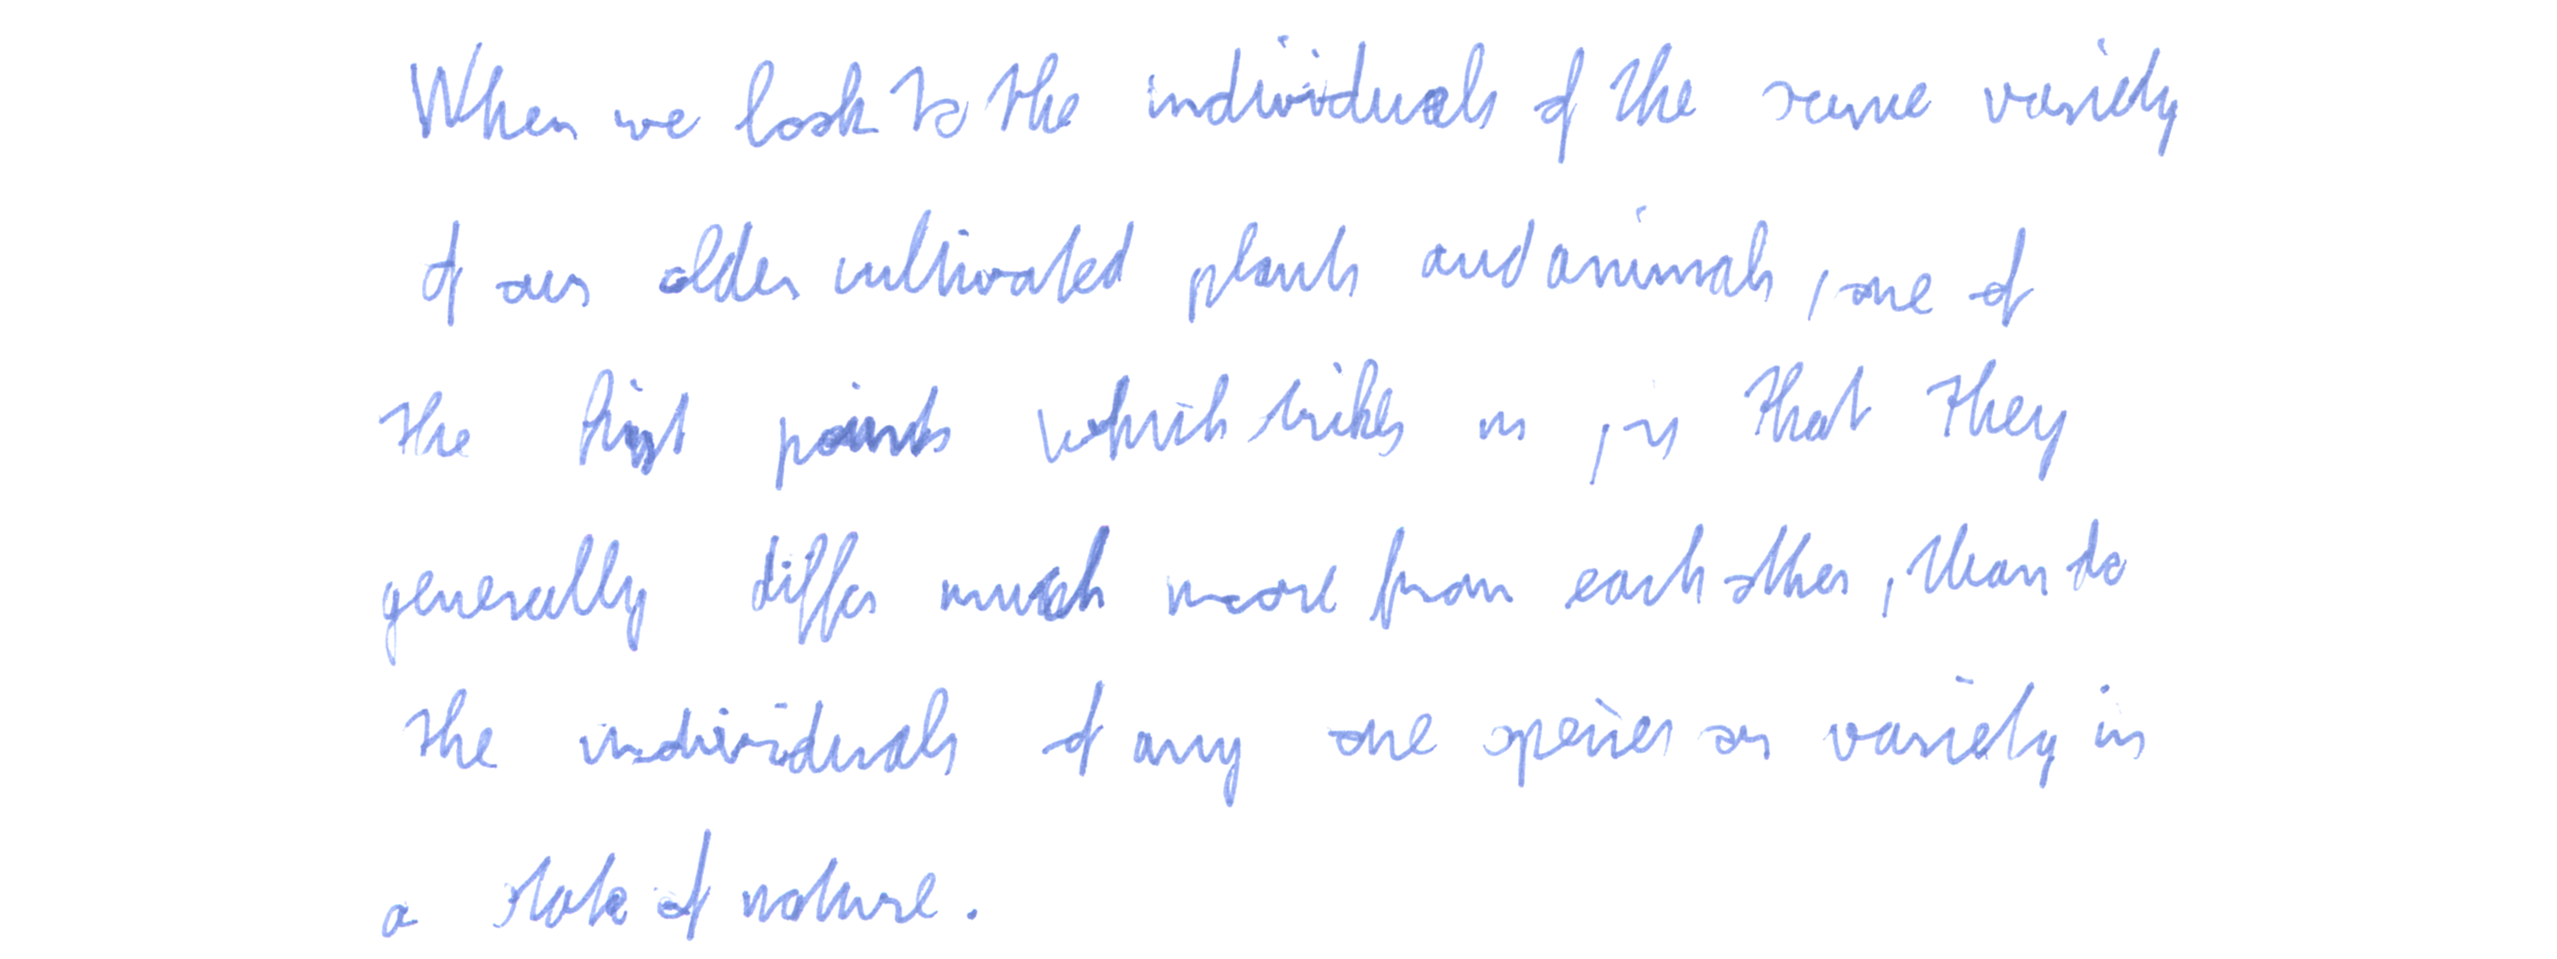 When we look to the individuals of the same variety
of our older cultivated plants and animals, one of
the first points which strikes us, is that they
generally differ much more from each other, than do
the individuals of any one species or variety in
a state of nature.